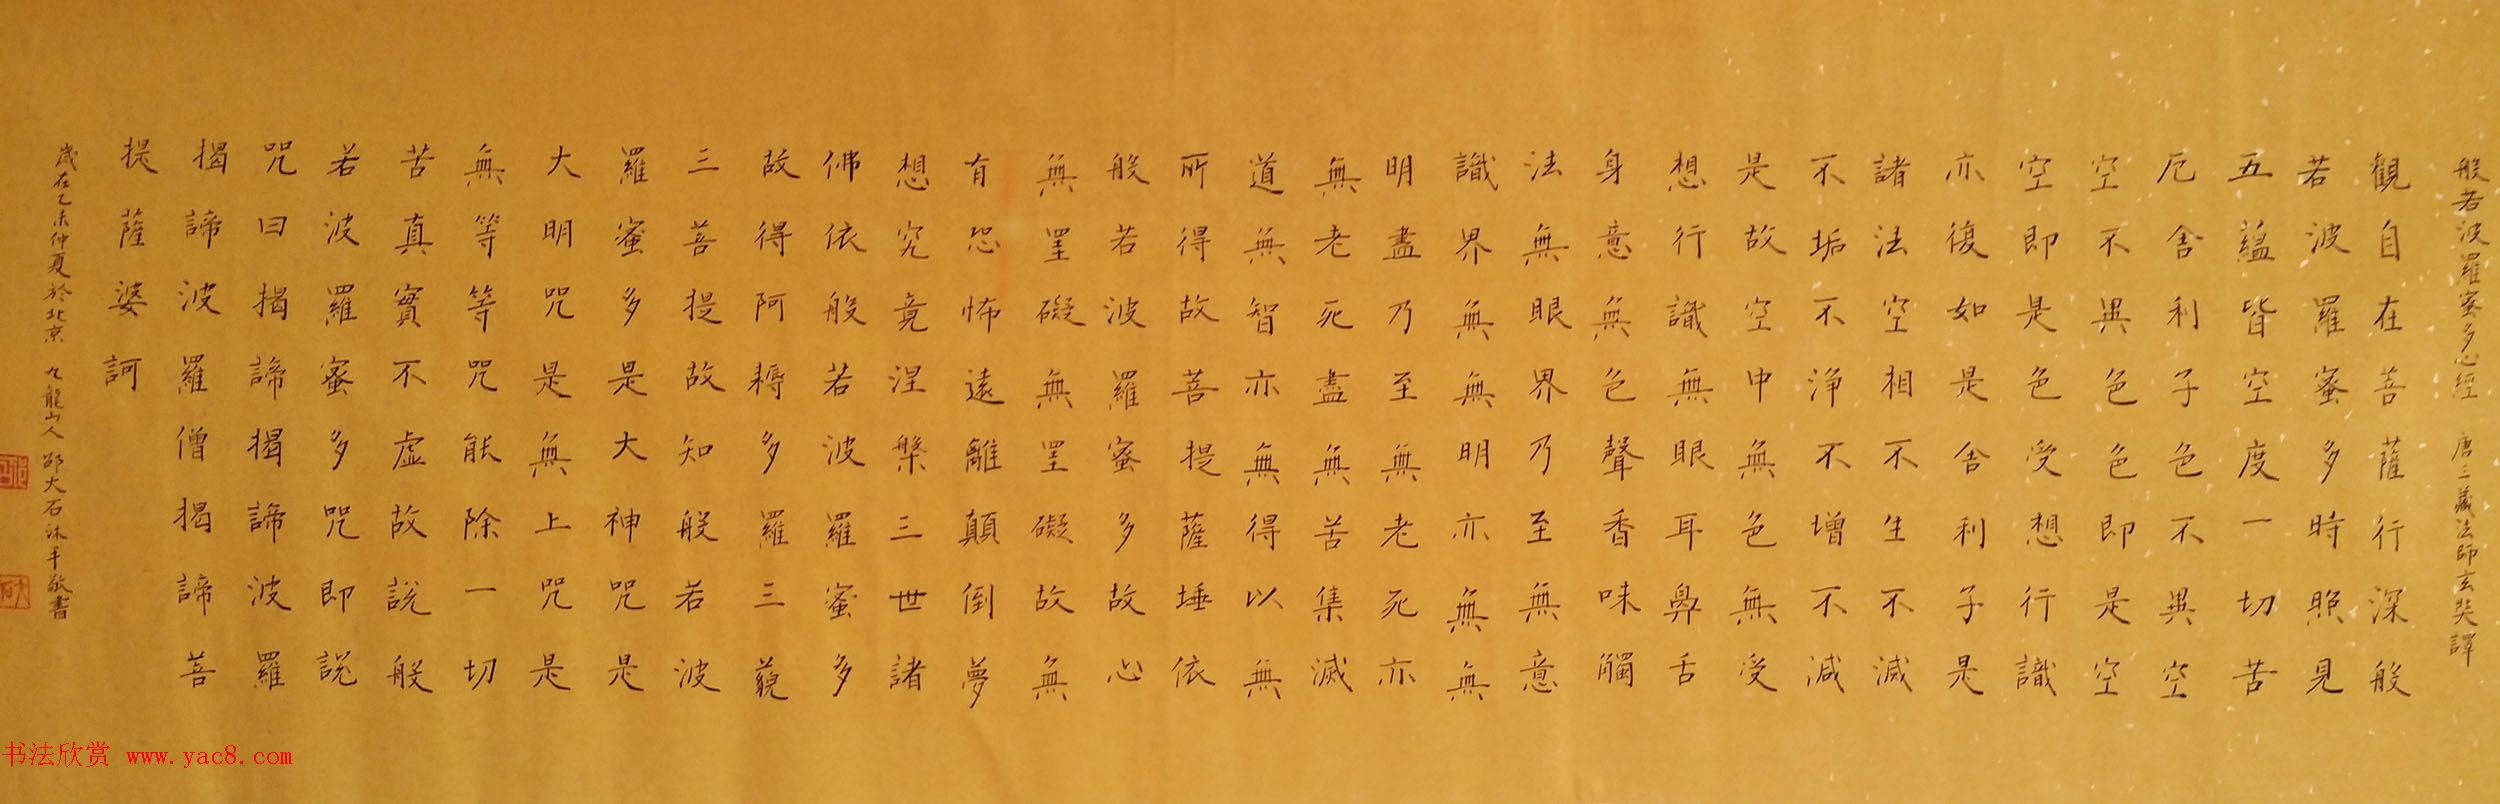 般若波羅蜜多心經 唐三藏法師玄奘譯
觀自在菩薩行深般
若波羅蜜多時照見
五蘊皆空度一切苦
厄舍利子色不異空
空不異色色即是空
空即是色受想行識
亦復如是舍利子是
諸法空相不生不滅
不垢不淨不增不減
是故空中無色無受
想行識無眼耳鼻舌
身意無色聲香味觸
法無眼界乃至無意
識界無無明亦無無
明盡乃至無老死亦
無老死盡無苦集滅
道無智亦無得以無
所得故菩提薩埵依
般若波羅蜜多故心
無罣礙無罣礙故無
有恐怖遠離顛倒夢
想究竟涅槃三世諸
佛依般若波羅蜜多
故得阿耨多羅三藐
三菩提故知般若波
羅蜜多是大神咒是
大明咒是無上咒是
無等等咒能除一切
苦真實不虛故說般
若波羅蜜多咒即說
咒曰揭諦揭諦波羅
揭諦波羅僧揭諦菩
提薩婆訶
歲在乙未仲夏於北京 九龍山人 邵大石沐手敬書
书法欣赏 www.yac8.com